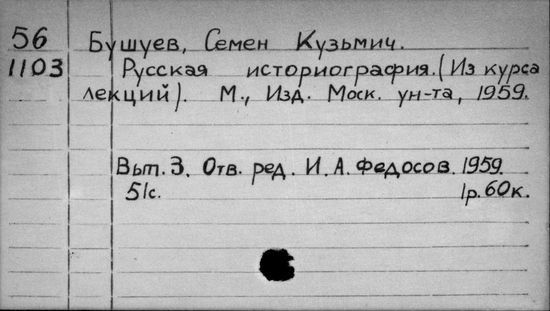 56 Бушуев, Семен Кузьмич.
1103 Русская историография. (Из курса
лекций). М., Изд. Моск. ун-та, 1959.
Вып. 3. Отв. ред. И. А. Федосов. 1959.
51с. 1р. 60к.